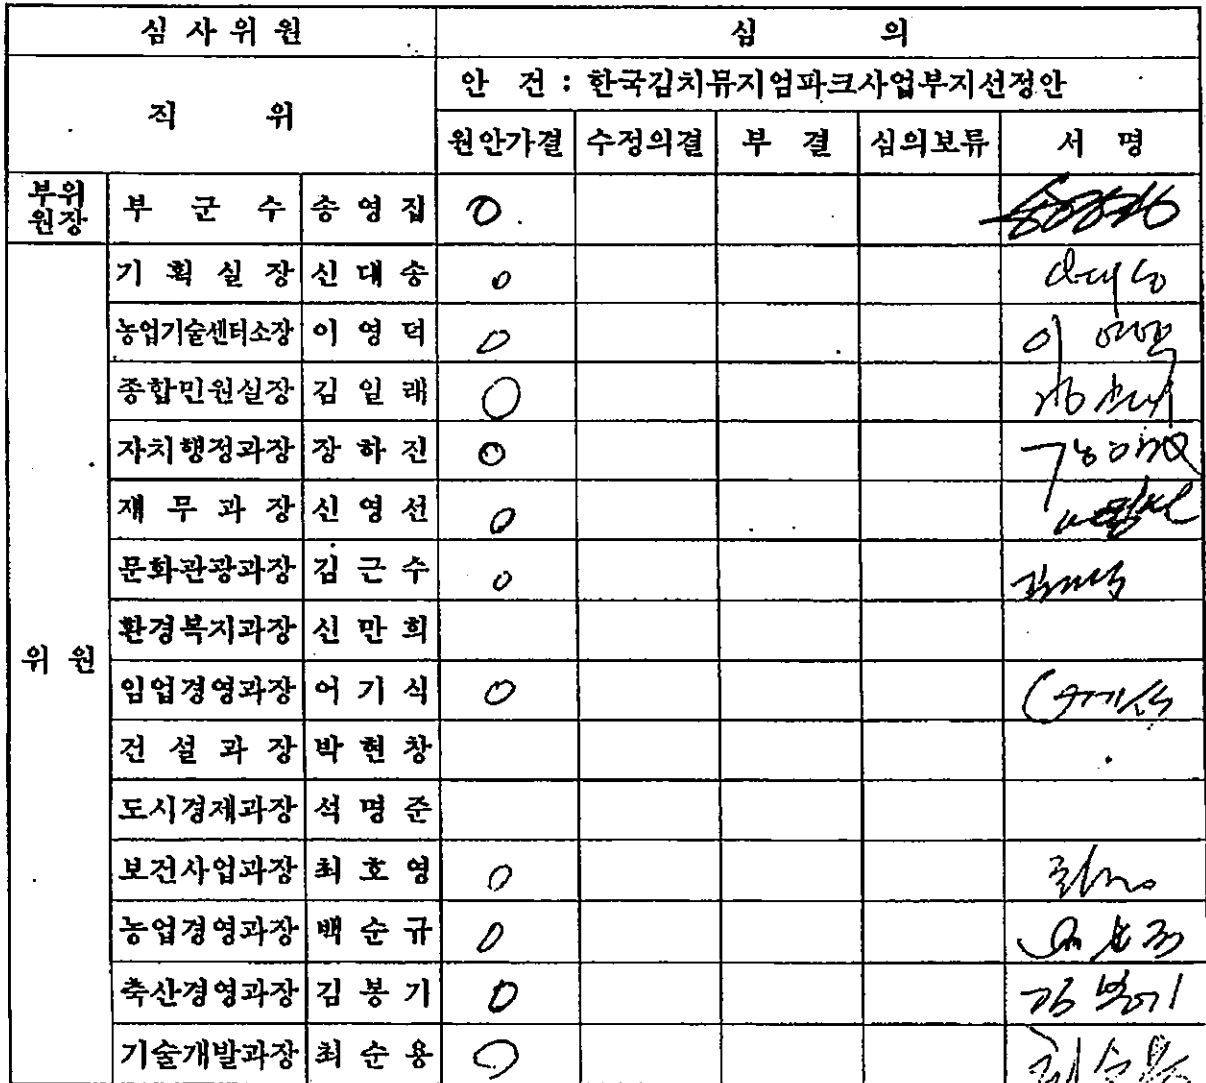 심 사 위 원 심 의
직 위 안 건 : 한국김치뮤지엄파크사업부지선정안
원안가결 수정의결 부 결 심의보류 서 명
부위원장 부 군 수 송 영 집 O
위 원
기 획 실 장 신 대 송 O
농업기술센터소장 이 영 덕 O
종합민원실장 김 일 래 O
자치행정과장 장 하 진 O
재 무 과 장 신 영 선 O
문화관광과장 김 근 수 O
환경복지과장 신 만 희
임업경영과장 어 기 식 O
건 설 과 장 박 현 창
도시경제과장 석 명 준
보건사업과장 최 호 영 O
농업경영과장 백 순 규 O
축산경영과장 김 봉 기 O
기술개발과장 최 순 용 O